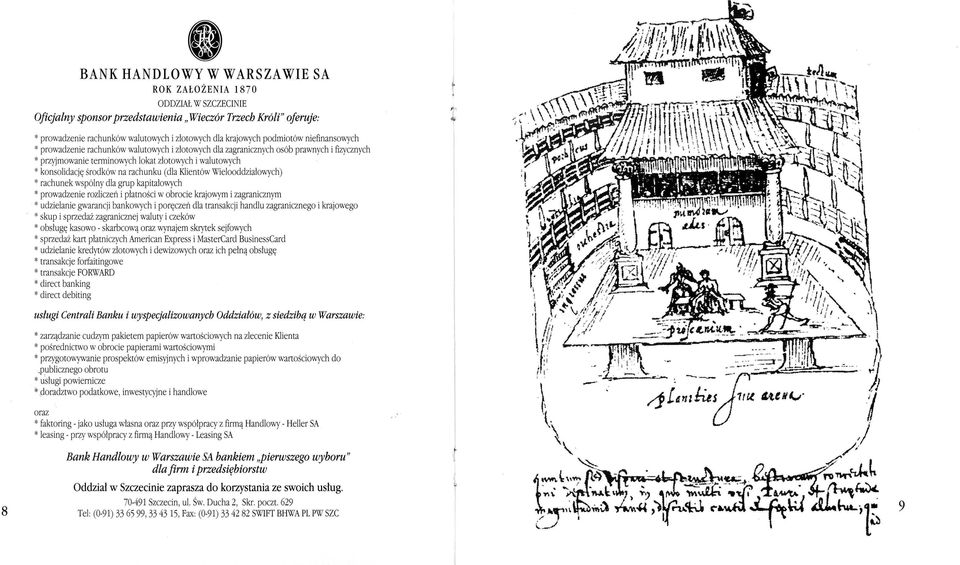 BANK HANDLOWY W WARSZAWIE SA
ROK ZAŁOŻENIA 1870
ODDZIAŁ W SZCZECINIE
Oficjalny sponsor przedstawienia „Wieczór Trzech Króli” oferuje:
* prowadzenie rachunków walutowych i złotowych dla krajowych podmiotów niefinansowych
* prowadzenie rachunków walutowych i złotowych dla zagranicznych osób prawnych i fizycznych
* przyjmowanie terminowych lokat złotowych i walutowych
* konsolidację środków na rachunku (dla Klientów Wielooddziałowych)
* rachunek wspólny dla grup kapitałowych
* prowadzenie rozliczeń i płatności w obrocie krajowym i zagranicznym
* udzielanie gwarancji bankowych i poręczeń dla transakcji handlu zagranicznego i krajowego
* skup i sprzedaż zagranicznej waluty i czeków
* obsługę kasowo - skarbcową oraz wynajem skrytek sejfowych
* sprzedaż kart płatniczych American Express i MasterCard BusinessCard
* udzielanie kredytów złotowych i dewizowych oraz ich pełną obsługę
* transakcje forfaitingowe
* transakcje FORWARD
* direct banking
* direct debiting
usługi Centrali Banku i wyspecjalizowanych Oddziałów, z siedzibą w Warszawie:
* zarządzanie cudzym pakietem papierów wartościowych na zlecenie Klienta
* pośrednictwo w obrocie papierami wartościowymi
* przygotowywanie prospektów emisyjnych i wprowadzanie papierów wartościowych do
publicznego obrotu
* usługi powiernicze
* doradztwo podatkowe, inwestycyjne i handlowe
oraz
* faktoring - jako usługa własna oraz przy współpracy z firmą Handlowy - Heller SA
* leasing - przy współpracy z firmą Handlowy - Leasing SA
Bank Handlowy w Warszawie SA bankiem „pierwszego wyboru”
dla firm i przedsiębiorstw
Oddział w Szczecinie zaprasza do korzystania ze swoich usług.
70-491 Szczecin, ul. Św. Ducha 2, Skr. poczt. 629
Tel: (0-91) 33 65 99, 33 43 15, Fax: (0-91) 33 42 82 SWIFT BHWA PL PW SZC
8
tectum
porticus
orchestra
mimorum
ædes
ingressus
proscænium
planities siue arena
9